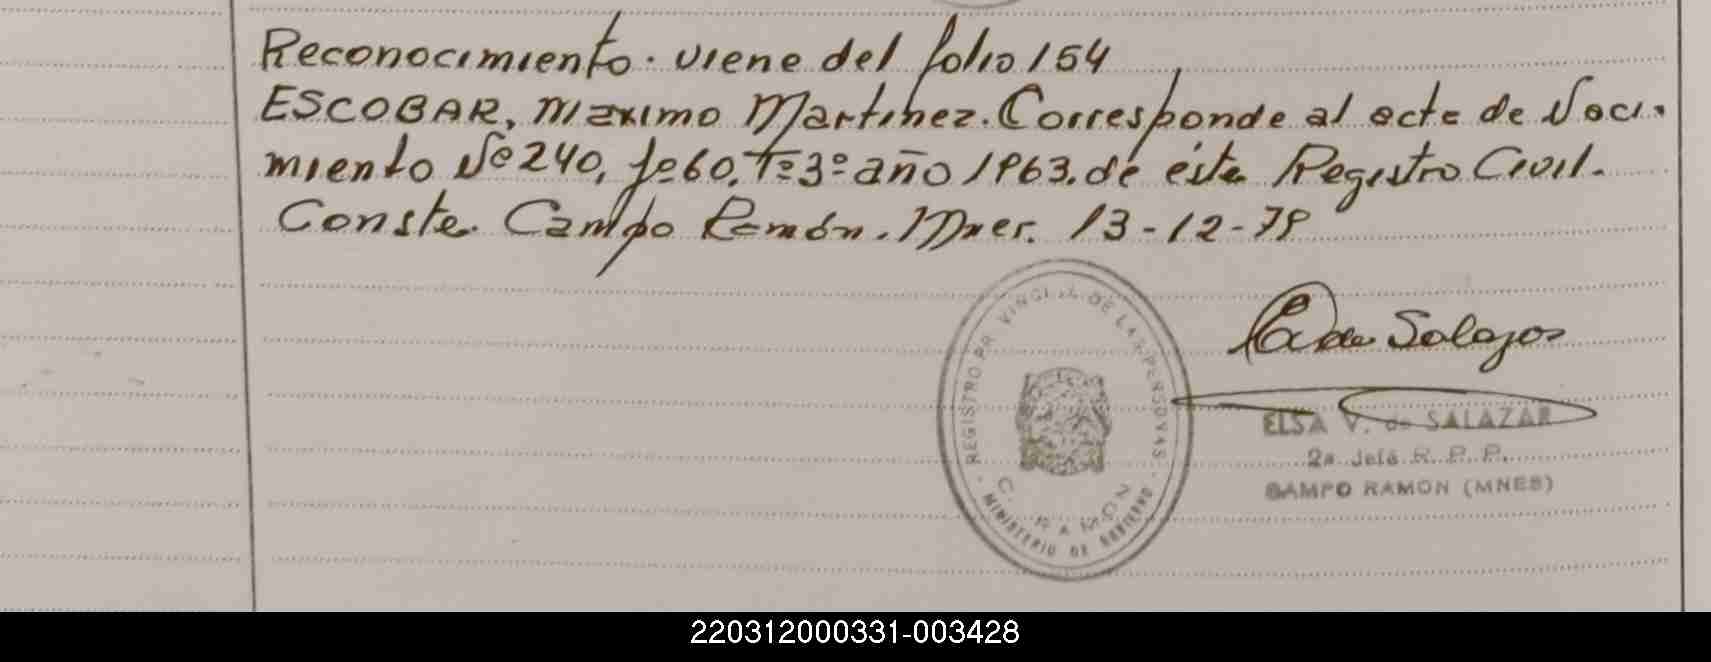 Reconocimiento. viene del folio 154
ESCOBAR, Maximo Martinez. Corresponde al acta de Naci-
miento Nº 240, fº 60, Tº 3º año 1963. de ésta Registro Civil.
Conste. Campo Ramón. Mnes. 13-12-79
REGISTRO PROVINCIAL DE LAS PERSONAS
C. RAMON
MINISTERIO DE GOBIERNO
de Salazar
ELSA V. de SALAZAR
2a Jefe R. P. P.
CAMPO RAMON (MNES)
220312000331-003428